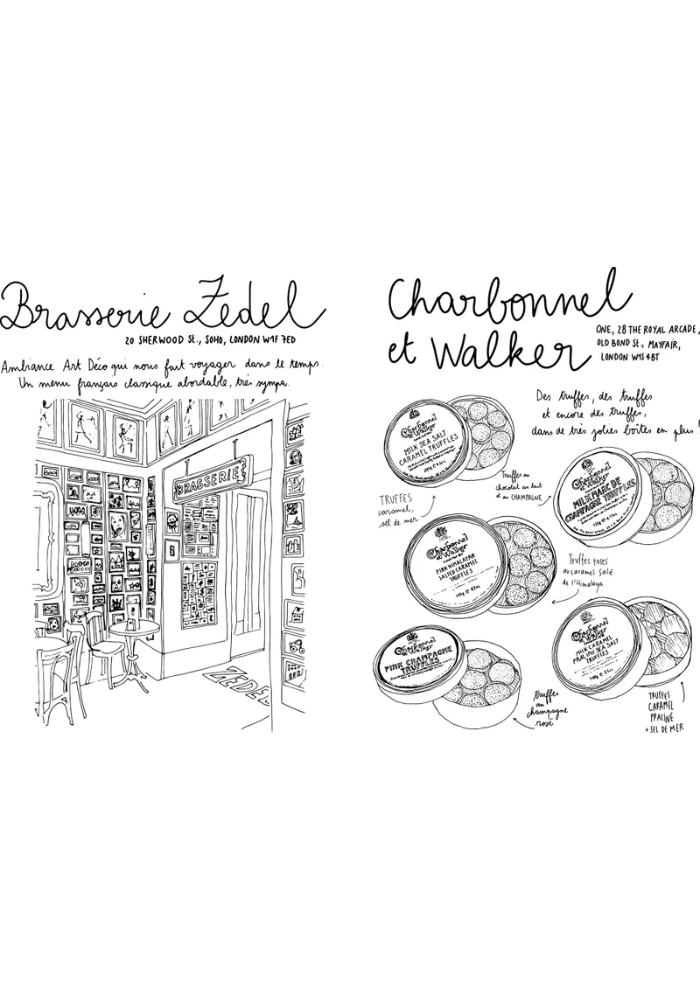 Brasserie Zedel
20 SHERWOOD St., SOHO, LONDON W1F 7ED
Ambiance Art Déco qui nous fait voyager dans le temps.
Un menu français classique abordable, très sympa.
BRASSERIE
ZEDEL
Charbonnel
et Walker
ONE, 28 THE ROYAL ARCADE,
OLD BOND St., MAYFAIR,
LONDON W1S 4BT
Des truffes, des truffes
et encore des truffes,
dans de très jolies boîtes en plus !
Charbonnel
et Walker
MILK SEA SALT
CARAMEL TRUFFLES
TRUFFES
caramel,
sel de mer
Truffes au
chocolat au lait
et au CHAMPAGNE
Charbonnel
et Walker
MILK MARC DE
CHAMPAGNE TRUFFLES
Charbonnel
et Walker
PINK HIMALAYAN
SALTED CARAMEL
TRUFFLES
Truffes roses
au caramel salé
de l'Himalaya
Charbonnel
et Walker
PINK CHAMPAGNE
TRUFFLES
truffes
au
champagne
rosé
Charbonnel
et Walker
MILK CARAMEL
PRALINE SEA SALT
TRUFFLES
TRUFFES
CARAMEL
PRALINE
+ SEL DE MER